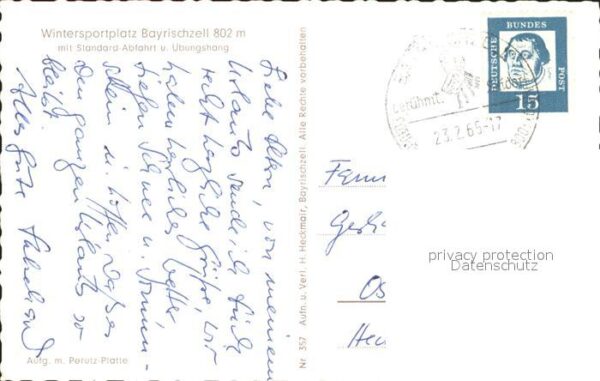 Wintersportplatz Bayrischzell 802 m
mit Standard-Abfahrt u. Übungshang
Liebe Eltern, von meinem
Urlaub sende ich Euch
recht herzliche Grüße, wir
haben herrliches Wetter
tiefen Schnee u. Sonnen-
schein u. hoffen daß es
den ganzen Urlaub so
bleibt
Alles Gute
Aufg. m. Perutz-Platte
Nr. 357 Aufn. u. Verl. H. Heckmair, Bayrischzell. Alle Rechte vorbehalten
DEUTSCHE
BUNDES
POST
15
berühmt
23.2.65-17
Fam
Os
privacy protection
Datenschutz